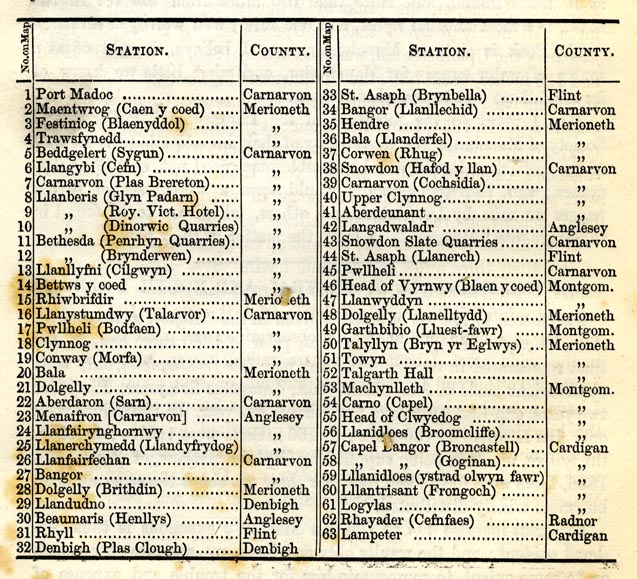 No. on Map STATION. COUNTY.
1 Port Madoc .......... Carnarvon
2 Maentwrog (Caen y coed) .. Merioneth
3 Festiniog (Blaenyddol) .......... „
4 Trawsfynedd .......... „
5 Beddgelert (Sygun) .......... Carnarvon
6 Llangybi (Cefn) .......... „
7 Carnarvon (Plas Brereton) .. „
8 Llanberis (Glyn Padarn) .... „
9 „ (Roy. Vict. Hotel) .. „
10 „ (Dinorwic Quarries) „
11 Bethesda (Penrhyn Quarries) .. „
12 „ (Brynderwen) .......... „
13 Llanllyfni (Cilgwyn) .......... „
14 Bettws y coed .......... „
15 Rhiwbrifdir .......... Merioneth
16 Llanystumdwy (Talarvor) .... Carnarvon
17 Pwllheli (Bodfaen) .......... „
18 Clynnog .......... „
19 Conway (Morfa) .......... „
20 Bala .......... Merioneth
21 Dolgelly .......... „
22 Aberdaron (Sarn) .......... Carnarvon
23 Menaifron [Carnarvon] .......... Anglesey
24 Llanfairynghornwy .......... „
25 Llanerchymedd (Llandyfrydog) „
26 Llanfairfechan .......... Carnarvon
27 Bangor .......... „
28 Dolgelly (Brithdin) .......... Merioneth
29 Llandudno .......... Denbigh
30 Beaumaris (Henllys) .......... Anglesey
31 Rhyll .......... Flint
32 Denbigh (Plas Clough) .......... Denbigh
No. on Map STATION. COUNTY.
33 St. Asaph (Brynbella) .......... Flint
34 Bangor (Llanllechid) .......... Carnarvon
35 Hendre .......... Merioneth
36 Bala (Llanderfel) .......... „
37 Corwen (Rhug) .......... „
38 Snowdon (Hafod y llan) .......... Carnarvon
39 Carnarvon (Cochsidia) .......... „
40 Upper Clynnog .......... „
41 Aberdeunant .......... „
42 Langadwaladr .......... Anglesey
43 Snowdon Slate Quarries .......... Carnarvon
44 St. Asaph (Llanerch) .......... Flint
45 Pwllheli .......... Carnarvon
46 Head of Vyrnwy (Blaen y coed) Montgom.
47 Llanwyddyn .......... „
48 Dolgelly (Llanelltydd) .......... Merioneth
49 Garthbibio (Lluest-fawr) .... Montgom.
50 Talyllyn (Bryn yr Eglwys) .. Merioneth
51 Towyn .......... „
52 Talgarth Hall .......... „
53 Machynlleth .......... Montgom.
54 Carno (Capel) .......... „
55 Head of Clwyedog .......... „
56 Llanidloes (Broomcliffe) .......... „
57 Capel Langor (Broncastell) .. Cardigan
58 „ „ (Goginan) .......... „
59 Lllanidloes (ystrad olwyn fawr) „
60 Lllantrisant (Frongoch) .......... „
61 Logylas .......... „
62 Rhayader (Cefnfaes) .......... Radnor
63 Lampeter .......... Cardigan